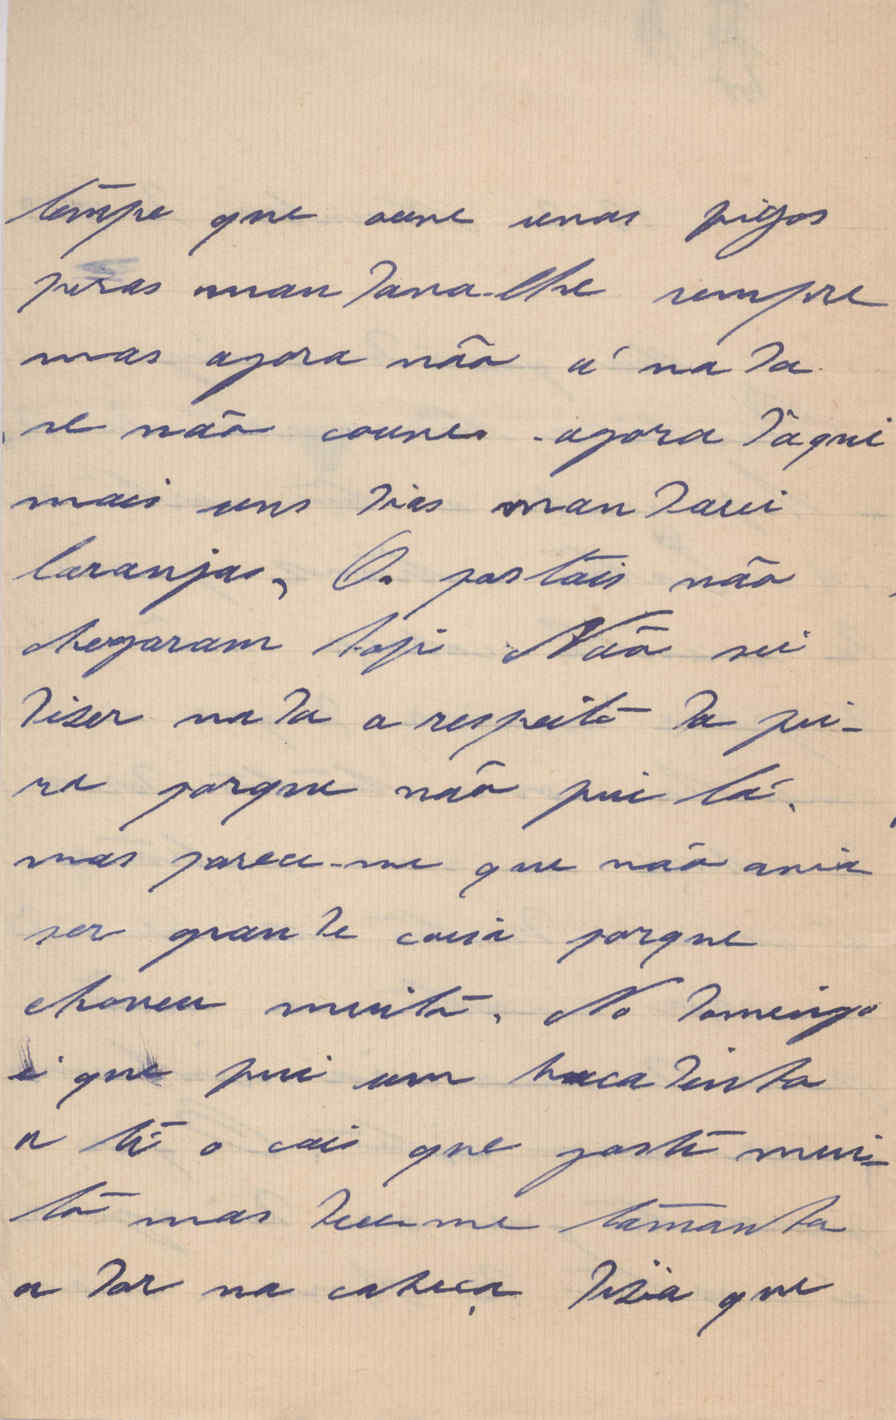 tempo que ouve unas figos
peras mandava-lhe sempre
mas agora não á nada
se não couves agora daqui
mais uns dias mandarei
laranjas, Os postais não
chegaram hoje Não sei
diser nada a respeito da fei-
ra porque não fui lá,
mas parece-me que não avia
ser grande coisa porque
choveu muito. No Domingo
é que fui um bucadinho
a té o cais que gostei mui-
to mas deu-me tamanha
a dor na cabeça disia que